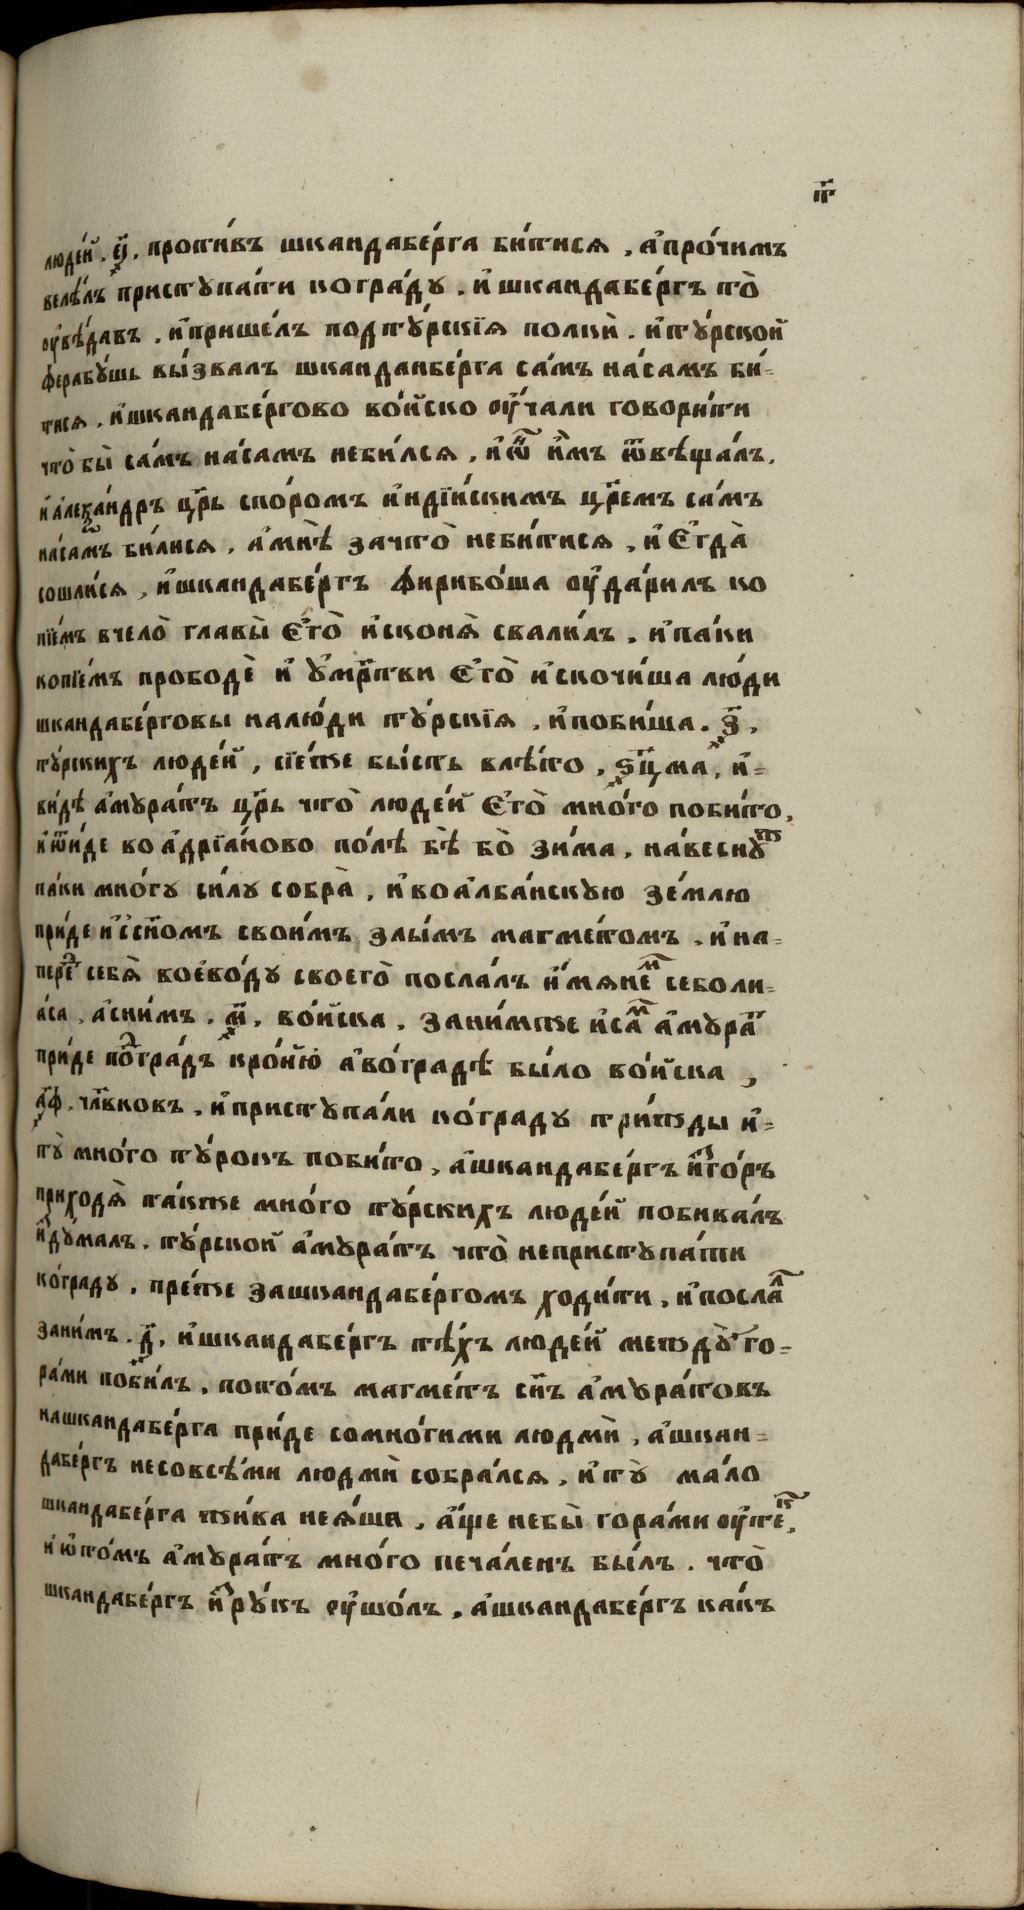 п҃г
люде́й . ҂є҃і , проти́въ шкандабе́рга би́тися , а҆про́чимъ
веле́лъ приступа́ти ко гра́ду . и҆ шкандабе́ргъ то̀
оу҆вѣ́давъ . и҆ прише́лъ под ту́рскїя полкѝ . и҆ ту́рской
ферабу́шь вы́звалъ шканданбе́рга са́мъ на́самъ би́=
тися . и҆ шкандабе́ргово во́йско оу҆чали говори́ти
что̀ бы̀ са́мъ на́самъ неби́лся , и҆ ѿ҆н и҆̀мъ ѿвѣща́лъ ,
и҆ а҆леѯа́ндръ цр҃ь спо́ромъ и҆ндїи́скимъ цр҃емъ са́мъ
на́самъ би́лися , а҆ мнѣ̀ зачто̀ неби́тися , и҆ є҆гда̀
сошли́ся , и҆ шкандабе́ргъ фирибо́ша оу҆да́рилъ ко
пїе́мъ вчело̀ главы̀ є҆го̀ и҆ сконѧ̀ свали́лъ , и҆ па́ки
копїе́мъ прободѐ и҆ у҆мр҃тви є҆го̀ и҆ скочи́ша лю́ди
шкандабе́рговы налю́ди ту́рскїя , и҆ поби́ша . ҂з҃ ,
ту́рскихъ люде́й , сїе́же бы́сть влѣ́то , ҂ѕц҃ма , и҆=
ви́дѣ а҆мура́тъ цр҃ь что̀ люде́й є҆го̀ мно́го поби́то ,
и҆ ѿи́де во а҆дрїа́ново по́лѣ бѣ̀ бо̀ зи́ма , на́весну ж
па́ки мно́гу си́лу собра̀ , и҆ во а҆лба́нскую зе́млю
прі́де и҆ с сн҃омъ свои́мъ злы́мъ магме́томъ . и҆ на=
пере д себѧ̀ воево́ду своего̀ посла́лъ и҆́мяне м себоли=
а́са , а҆ сни́мъ . ҂м҃ , во́йска . зани́мже и҆ са м а҆мура т
прі́де по д гра́дъ кро́ню а҆ во́градѣ бы́ло во́йска ,
҂а҃ф . чл҃вковъ . и҆ приступа́ли ко́граду три́жды и҆=
ту̀ мно́го ту́рокъ поби́то , а҆ шкандабе́ргъ и҆ з го́ръ
приходѧ̀ та́кже мно́го ту́рскихъ люде́й побива́лъ
и҆ ду́малъ . ту́рской а҆мура́тъ что̀ неприступа́ти
ко́граду , пре́же зашкандабе́ргомъ ходи́ти , и҆ посла л
зани́мъ . ҂д҃ , и҆ шкандабе́ргъ тѣ́хъ люде́й между̀ го=
ра́ми поби́лъ , пото́мъ магме́тъ сн҃ъ а҆мура́товъ
нашкандабе́рга прі́де сомно́гими людмѝ , а҆ шкан=
дабе́ргъ несовсѣ́ми людмѝ собра́лся , и҆ ту̀ ма́ло
шкандабе́рга жи́ва неѧ́ши , а҆ще небы̀ гора́ми оу҆те к ,
и҆ ѡ҆ то́мъ а҆мура́тъ мно́го печа́ленъ бы́лъ . что̀
шкандабе́ргъ и҆ з ру́къ оу҆шо́лъ , а҆ шкандабе́ргъ ка́къ